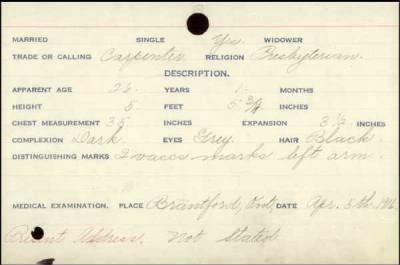 MARRIED SINGLE Yes WIDOWER
TRADE OR CALLING Carpenter RELIGION Presbyterian.
DESCRIPTION.
APPARENT AGE 26 YEARS 1 MONTHS
HEIGHT 5 FEET 5 3/4 INCHES
CHEST MEASUREMENT 35 INCHES EXPANSION 3 1/2 INCHES
COMPLEXION Dark EYES Grey HAIR Black
DISTINGUISHING MARKS 3 vacc marks left arm.
MEDICAL EXAMINATION. PLACE Brantford, Ont, DATE Apr. 5th. 1916.
Present Address. Not Stated